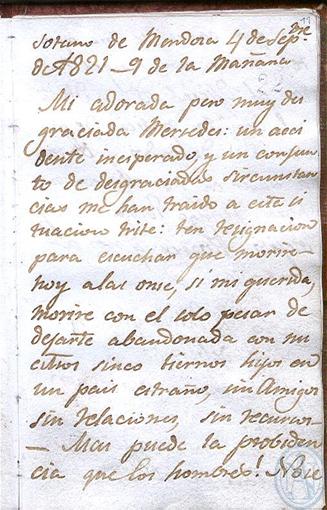 Sotano de Mendoza 4 de Sepbre
de 1821_9 de la Mañana
Mi adorada pero muy des
graciada Mercedes: un acci
dente insperado, y un conjun
to de desgraciadas sircunstan
cias me han traido a esta si
tuacion triste: ten resignacion
para escuchar que morire
hoy alas onse, si mi querida,
morire con el solo pesar de
dejarte abandonada con nu
estros sinco tiernos hijos en
un pais estraño, sin Amigos
sin relaciones, sin recursos
— Mas puede la probiden
cia que los hombres! No se